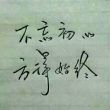 不忘初心
方得始终